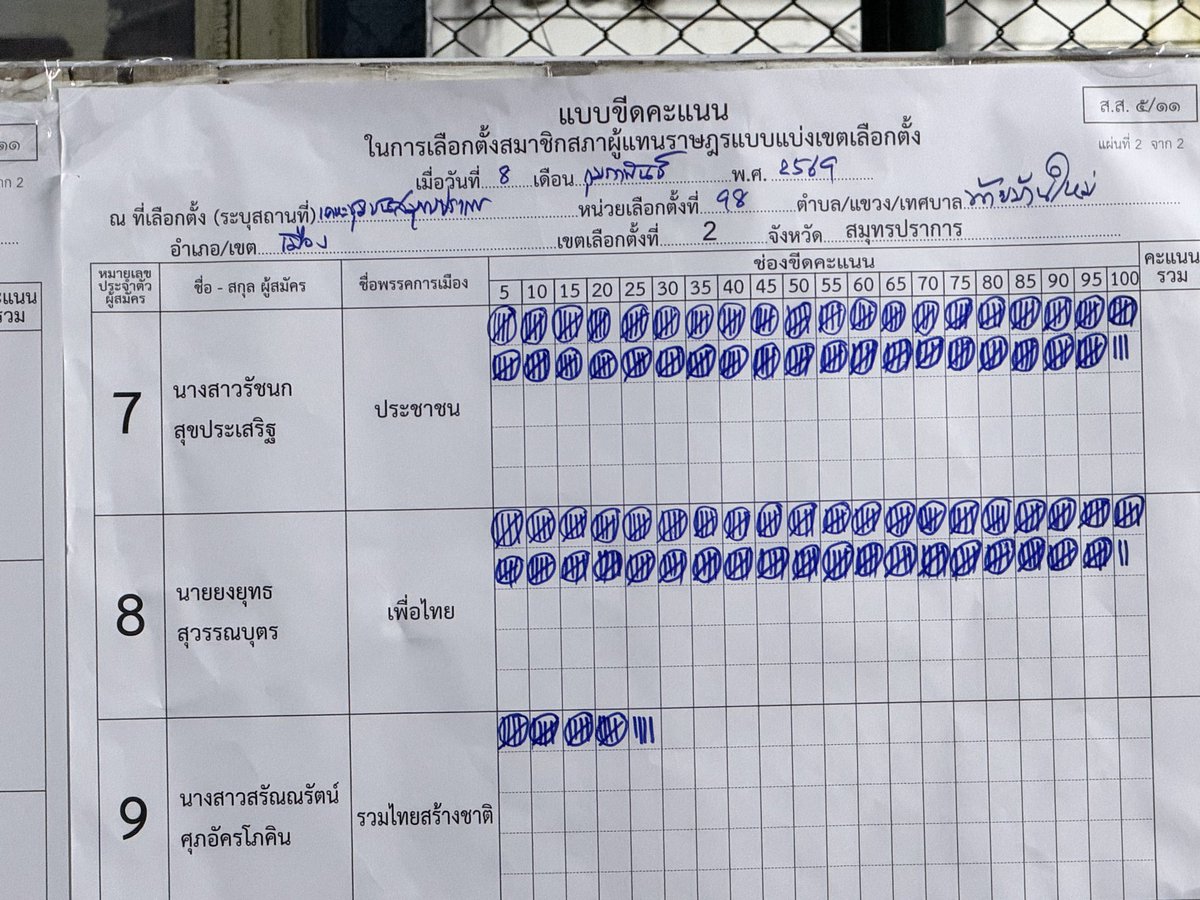 แบบขีดคะแนน
ส.ส. ๕/๑๑
ในการเลือกตั้งสมาชิกสภาผู้แทนราษฎรแบบแบ่งเขตเลือกตั้ง
แผ่นที่ 2 จาก 2
เมื่อวันที่ 8 เดือน กุมภาพันธ์ พ.ศ. 2569
ณ ที่เลือกตั้ง (ระบุสถานที่) หน่วยเลือกตั้งที่ 98 ตำบล/แขวง/เทศบาล ท้ายบ้านใหม่
อำเภอ/เขต เมือง เขตเลือกตั้งที่ 2 จังหวัด สมุทรปราการ
หมายเลข
ประจำตัว
ผู้สมัคร
ชื่อ - สกุล ผู้สมัคร
ชื่อพรรคการเมือง
ช่องขีดคะแนน
5 10 15 20 25 30 35 40 45 50 55 60 65 70 75 80 85 90 95 100
คะแนน
รวม
7
นางสาวรัชนก
สุขประเสริฐ
ประชาชน
8
นายยงยุทธ
สุวรรณบุตร
เพื่อไทย
9
นางสาวสรัณณรัตน์
ศุภอัครโภคิน
รวมไทยสร้างชาติ
๑๑
าก 2
ะแนน
รวม